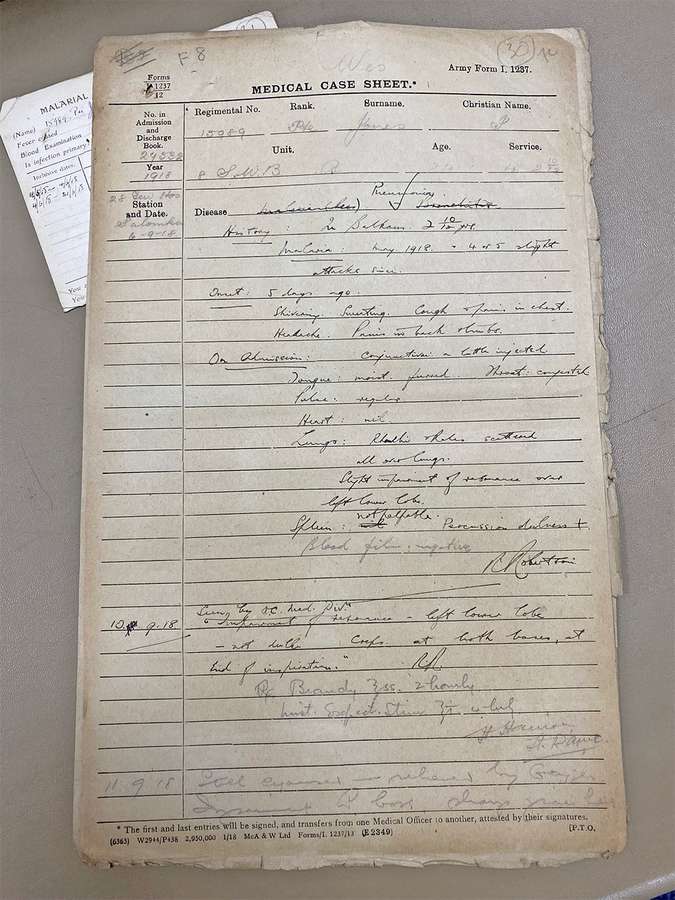 F 8
30
Forms
I 1237
12
MEDICAL CASE SHEET.*
Army Form I. 1237.
No. in
Admission
and
Discharge
Book.
Year
1918
Regimental No. Rank. Surname. Christian Name.
15989 Pte Jones P
Unit. Age. Service.
8 S.W.B.
Station
and Date.
28 Gen Hos
Salonika
6-9-18
Disease Pneumonia
History: In Balkans 2 10/12 yrs.
Malaria May 1918. 4 or 5 slight
attacks since.
Onset: 5 days ago.
Shivering. Sweating. Cough & pains in chest.
Headache. Pains in back & limbs.
On Admission: Conjunctivae a little injected
Tongue: moist furred Throat: congested
Pulse: regular
Heart: nil
Lungs: Rhonchi & rales scattered
all over lungs.
Slight impairment of resonance over
left lower lobe.
Spleen: not palpable. Percussion dulness +
Blood film: negative
R Robertson
10.9.18 Seen by O.C. Med. Divn
"Impairment of resonance - left lower lobe
- not dull. Creps. at both bases, at
end of inspiration."
Rx Brandy ʒss. 2 hourly
mist. Expect. Stim
11.9.18
* The first and last entries will be signed, and transfers from one Medical Officer to another, attested by their signatures.
(6363) W2944/P438 2,950,000 1/18 McA & W Ltd Forms/I. 1237/13 (E 2349) [P.T.O.
MALARIAL
(Name) 15989
Fever
Blood Examination
Is infection primary
Inclusive dates